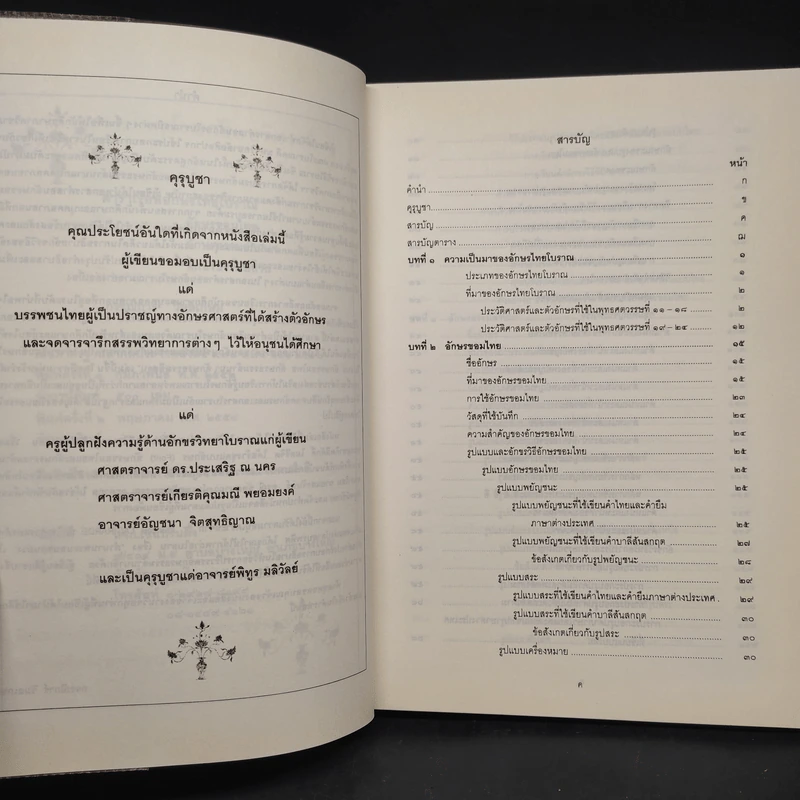 คุรุบูชา
คุณประโยชน์อันใดที่เกิดจากหนังสือเล่มนี้
ผู้เขียนขอมอบเป็นคุรุบูชา
แด่
บรรพชนไทยผู้เป็นปราชญ์ทางอักษรศาสตร์ที่ได้สร้างตัวอักษร
และจดจารจารึกสรรพวิทยาการต่างๆ ไว้ให้อนุชนได้ศึกษา
แด่
ครูผู้ปลูกฝังความรู้ด้านอักขรวิทยาโบราณแก่ผู้เขียน
ศาสตราจารย์ ดร.ประเสริฐ ณ นคร
ศาสตราจารย์เกียรติคุณมณี พยอมยงค์
อาจารย์อัญชนา จิตสุทธิญาณ
และเป็นคุรุบูชาแด่อาจารย์พิทูร มลิวัลย์
สารบัญ
หน้า
คำนำ ก
คุรุบูชา ข
สารบัญ ค
สารบัญตาราง ฌ
บทที่ ๑ ความเป็นมาของอักษรไทยโบราณ ๑
ประเภทของอักษรไทยโบราณ ๑
ที่มาของอักษรไทยโบราณ ๒
ประวัติศาสตร์และตัวอักษรที่ใช้ในพุทธศตวรรษที่ ๑๑-๑๘ ๒
ประวัติศาสตร์และตัวอักษรที่ใช้ในพุทธศตวรรษที่ ๑๙-๒๔ ๑๒
บทที่ ๒ อักษรขอมไทย ๑๕
ชื่ออักษร ๑๕
ที่มาของอักษรขอมไทย ๑๕
การใช้อักษรขอมไทย ๒๓
วัสดุที่ใช้บันทึก ๒๔
ความสำคัญของอักษรขอมไทย ๒๔
รูปแบบและอักขรวิธีอักษรขอมไทย ๒๕
รูปแบบอักษรขอมไทย ๒๕
รูปแบบพยัญชนะ ๒๕
รูปแบบพยัญชนะที่ใช้เขียนคำไทยและคำยืม
ภาษาต่างประเทศ ๒๕
รูปแบบพยัญชนะที่ใช้เขียนคำบาลีสันสกฤต ๒๗
ข้อสังเกตเกี่ยวกับรูปพยัญชนะ ๒๘
รูปแบบสระ ๒๙
รูปแบบสระที่ใช้เขียนคำไทยและคำยืมภาษาต่างประเทศ . ๒๙
รูปแบบสระที่ใช้เขียนคำบาลีสันสกฤต ๓๐
ข้อสังเกตเกี่ยวกับรูปสระ ๓๐
รูปแบบเครื่องหมาย ๓๐
ค